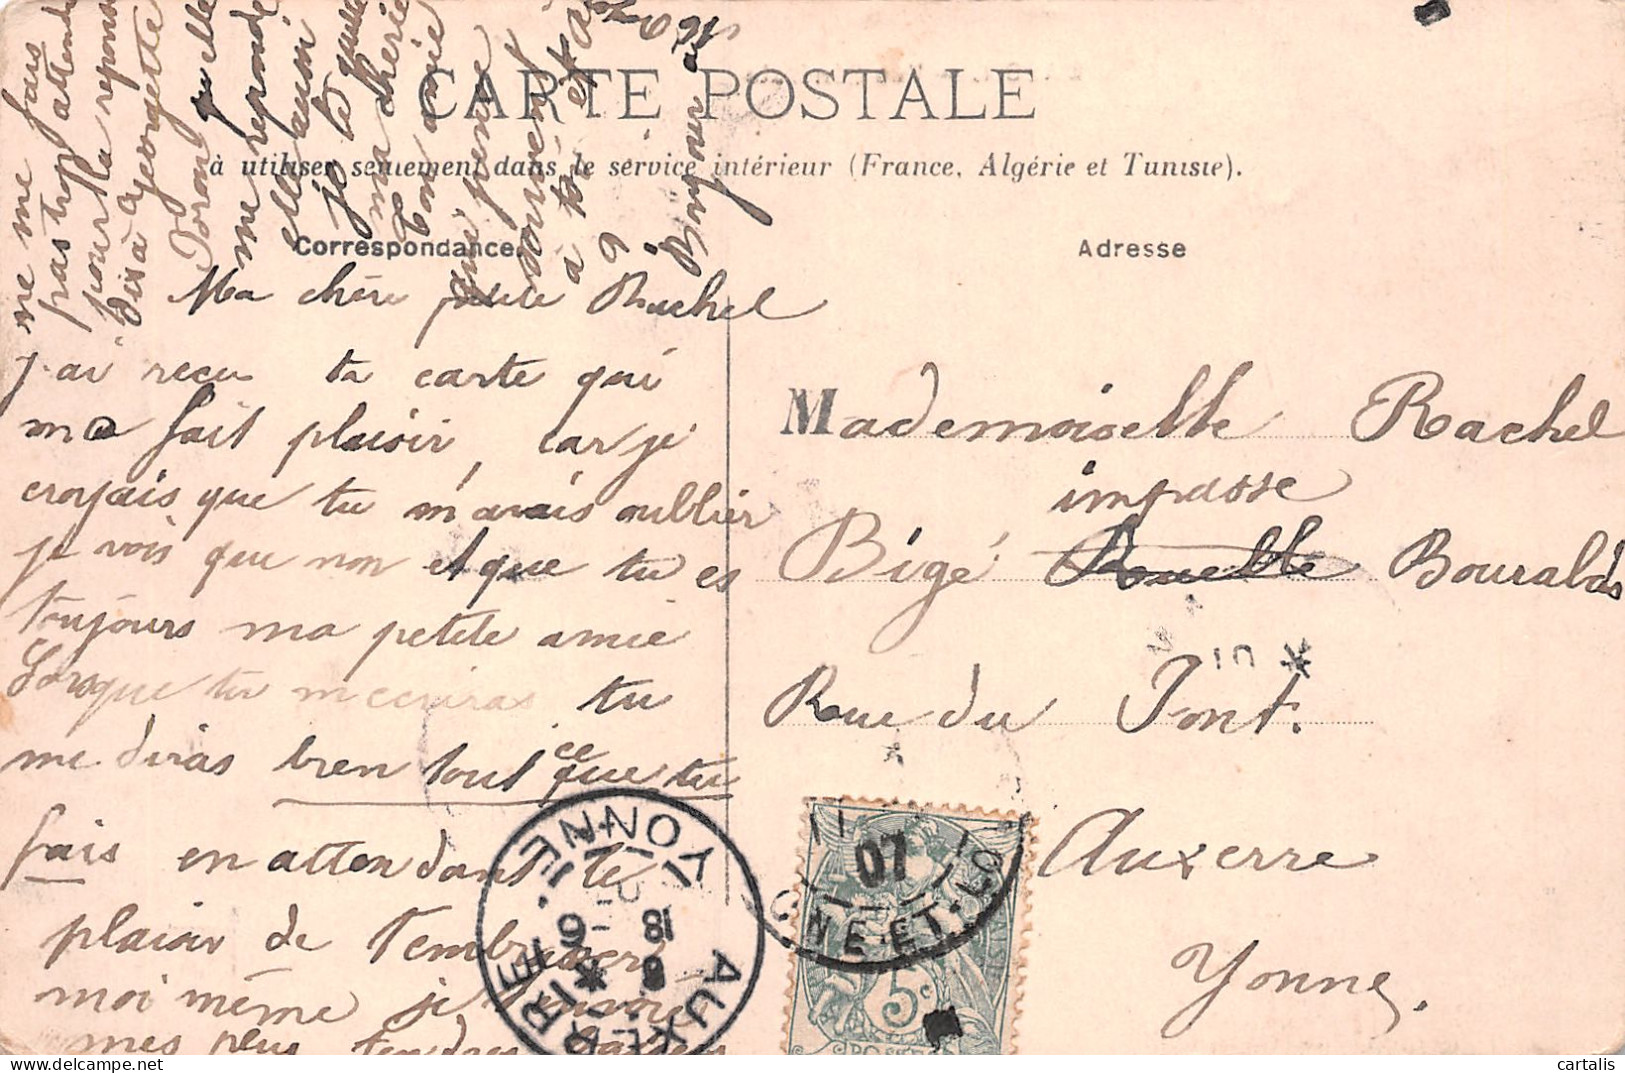 CARTE POSTALE
à utiliser seulement dans le service intérieur (France, Algérie et Tunisie).
Correspondance
Adresse
Ma chère petite Rachel
j'ai reçu ta carte qui
ma fait plaisir, car je
croyais que tu m'avais oublier
je vois que non et que tu es
toujours ma petite amie
Lorsque tu m'ecriras tu
me diras bien tout ce que tu
fais en attendant le
plaisir de t'embrasser
moi même je t'envoie
mes plus tendres baisers
ne me fais
pas trop attendre
pour la reponse
Dis à Georgette
qu'elle
me reponde
elle aussi
je te quitte
ma cherie
Ton amie
qui pense
à toi et
Bonjour à
Mademoiselle Rachel
impasse
Bigé Ruelle Bourabis
Rue du Pont.
Auxerre
Yonne.
AUXERRE
YONNE
18
07
NE-ET-LO
5c
POSTES
cartalis